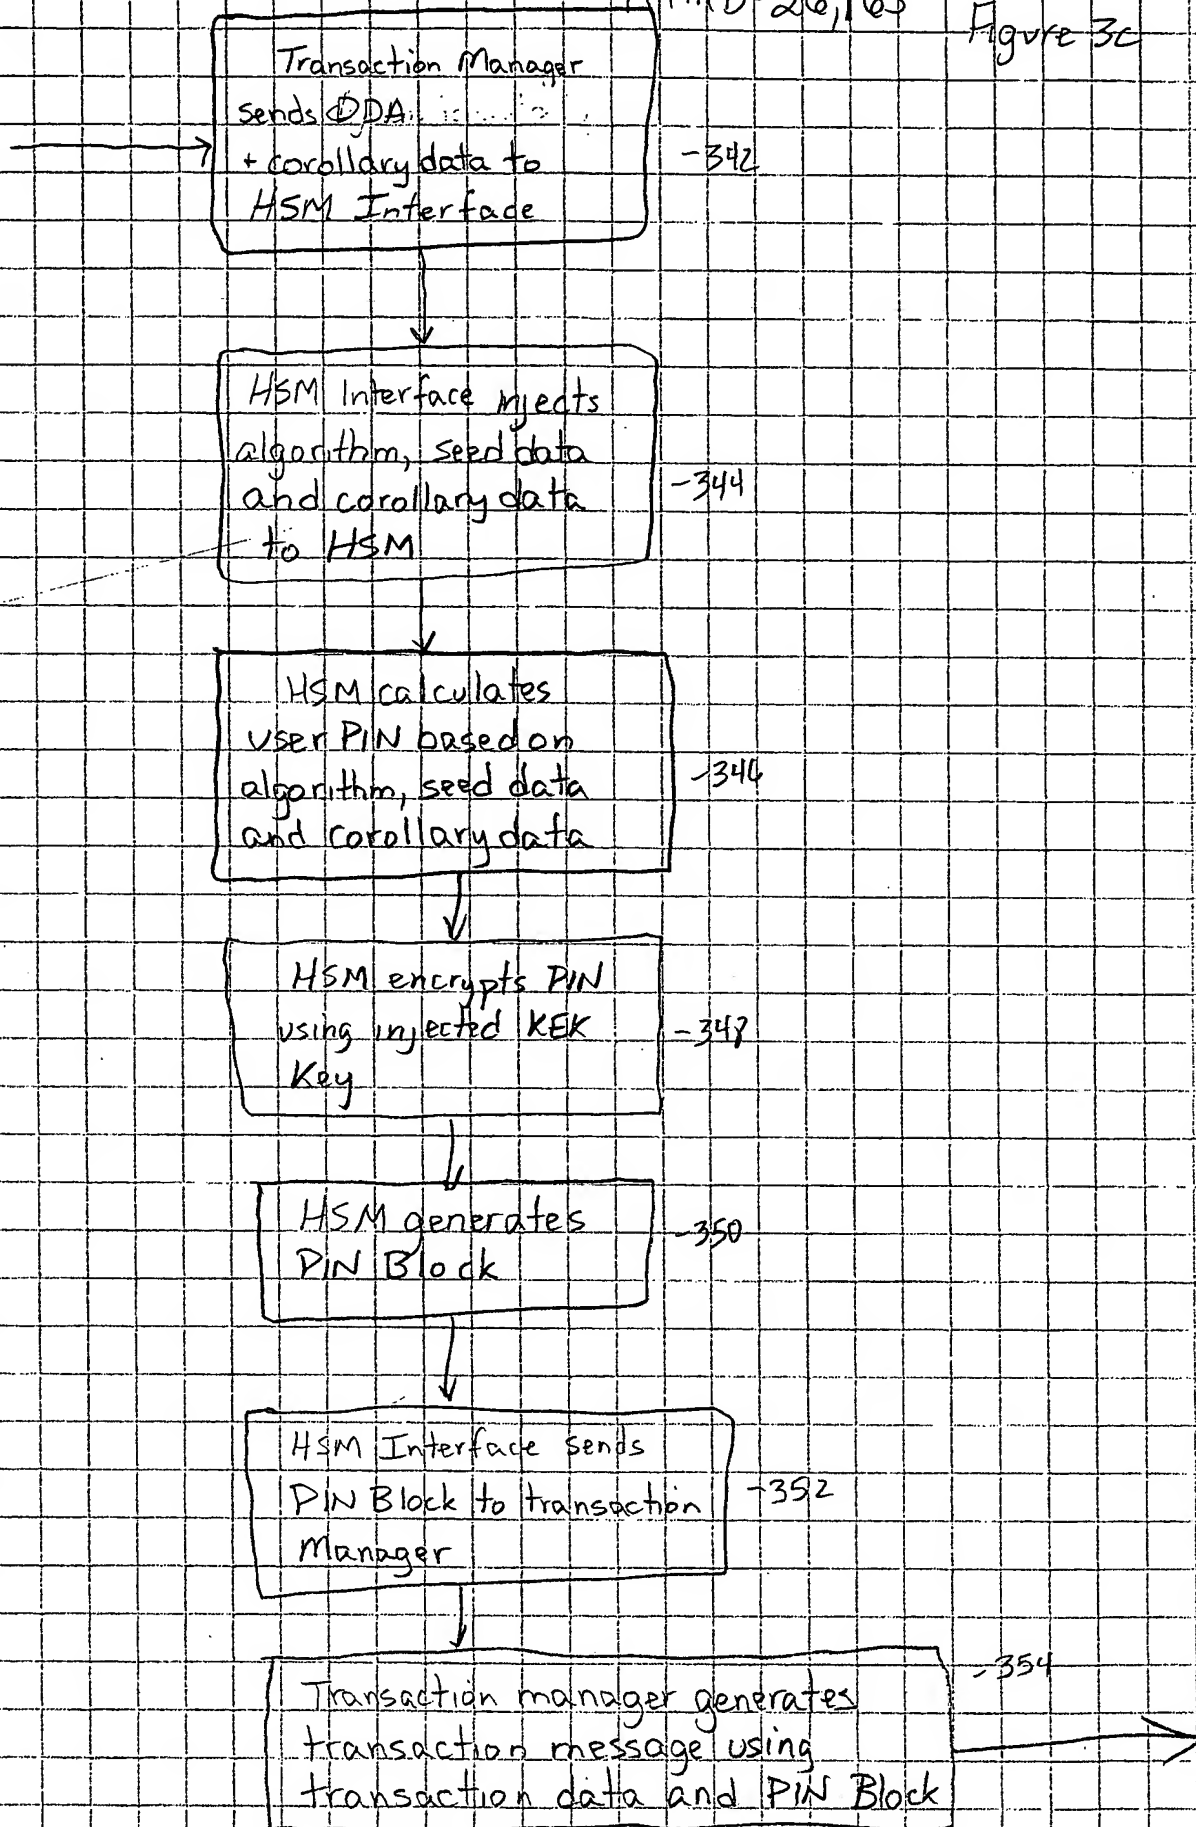 26,163
Figure 3c
Transaction Manager
sends DDA
+ corollary data to
HSM Interface
-342
HSM Interface injects
algorithm, seed data
and corollary data
to HSM
-344
HSM calculates
user PIN based on
algorithm, seed data
and corollary data
-346
HSM encrypts PIN
using injected KEK
Key
-348
HSM generates
PIN Block
-350
HSM Interface sends
PIN Block to transaction
Manager
-352
-354
Transaction manager generates
transaction message using
transaction data and PIN Block